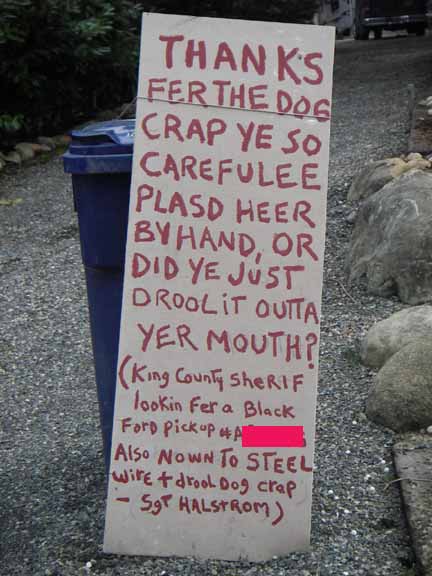 THANKS
FER THE DOG
CRAP YE SO
CAREFULEE
PLASD HEER
BY HAND, OR
DID YE JUST
DROOL iT OUTTA
YER MOUTH?
(KiNg COUNTy SHeRIF
lookin Fer a Black
FoRD Pickup #A
Also NOWN TO STEEL
wire + drool Dog crap
- SgT HALSTROM)